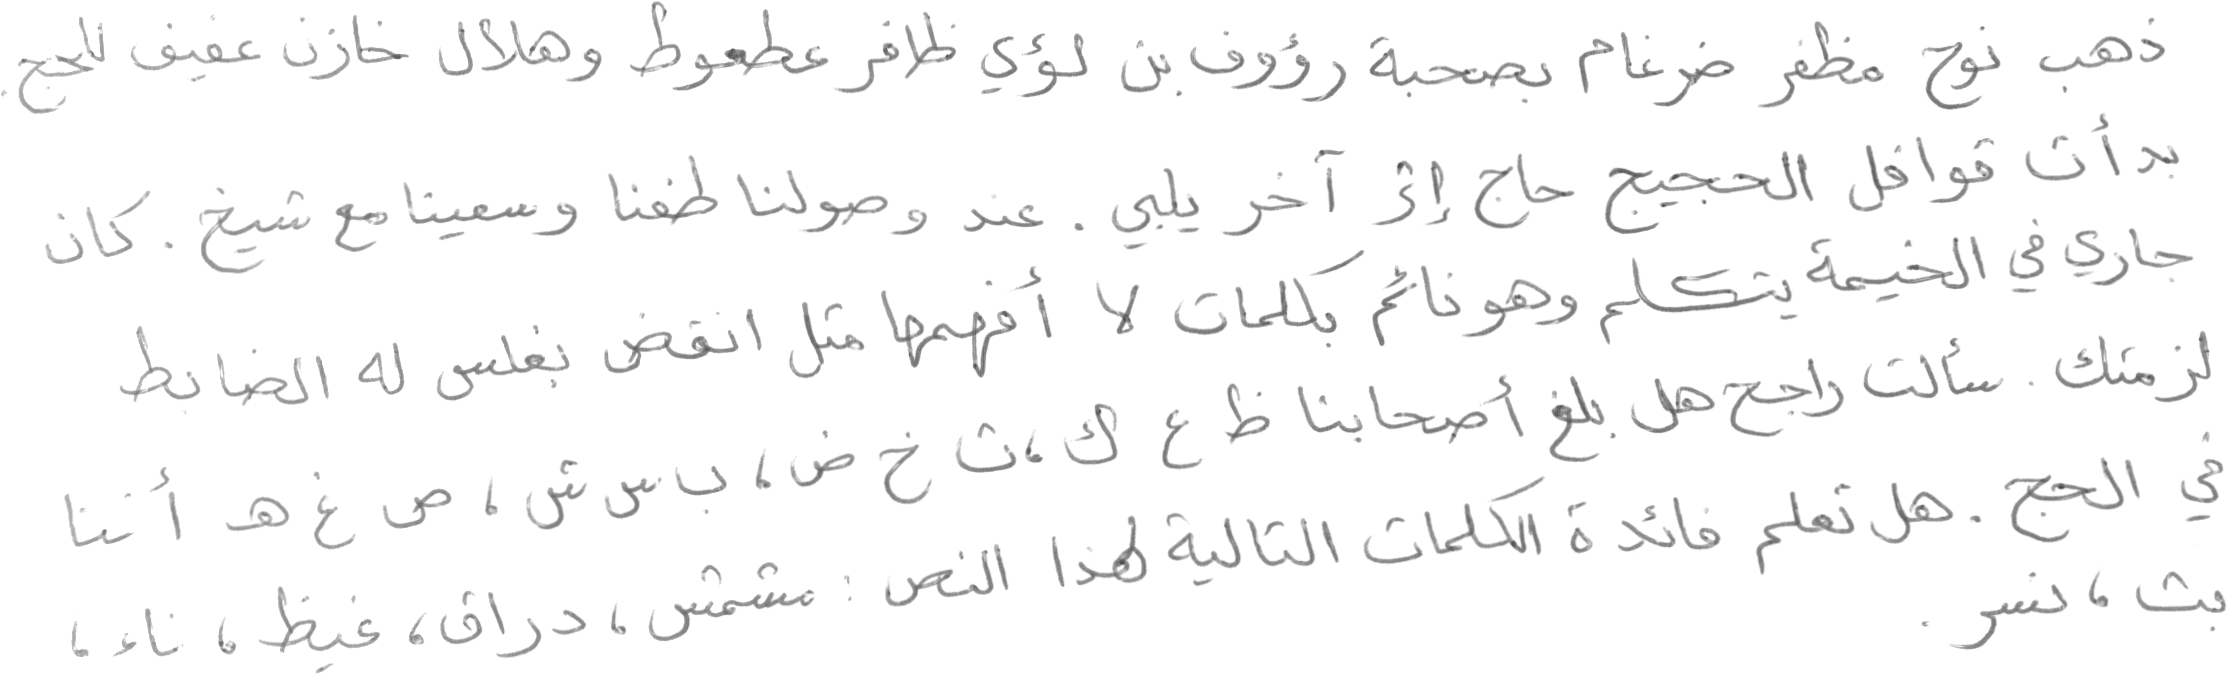 ذهب نوح مظفر ضرغام بصحبة رؤوف بن لؤي ظافر عطعوط وهلال خازن عفيف للحج.
بدأت قوافل الحجيج حاج إثر آخر يلبي. عند وصولنا طفنا وسعينا مع شيخ. كان
جاري في الخيمة يتكلم وهو نائم بكلمات لا أفهمها مثل انقض بغلس له الضابط
لزمتك. سألت راجح هل بلغ أصحابنا ظ ع ك، ث خ ض، ب س ش، ص غ هـ أننا
في الحج. هل تعلم فائدة الكلمات التالية لهذا النص: مشمش، دراق، غيظ، ناء،
بث، نسر.